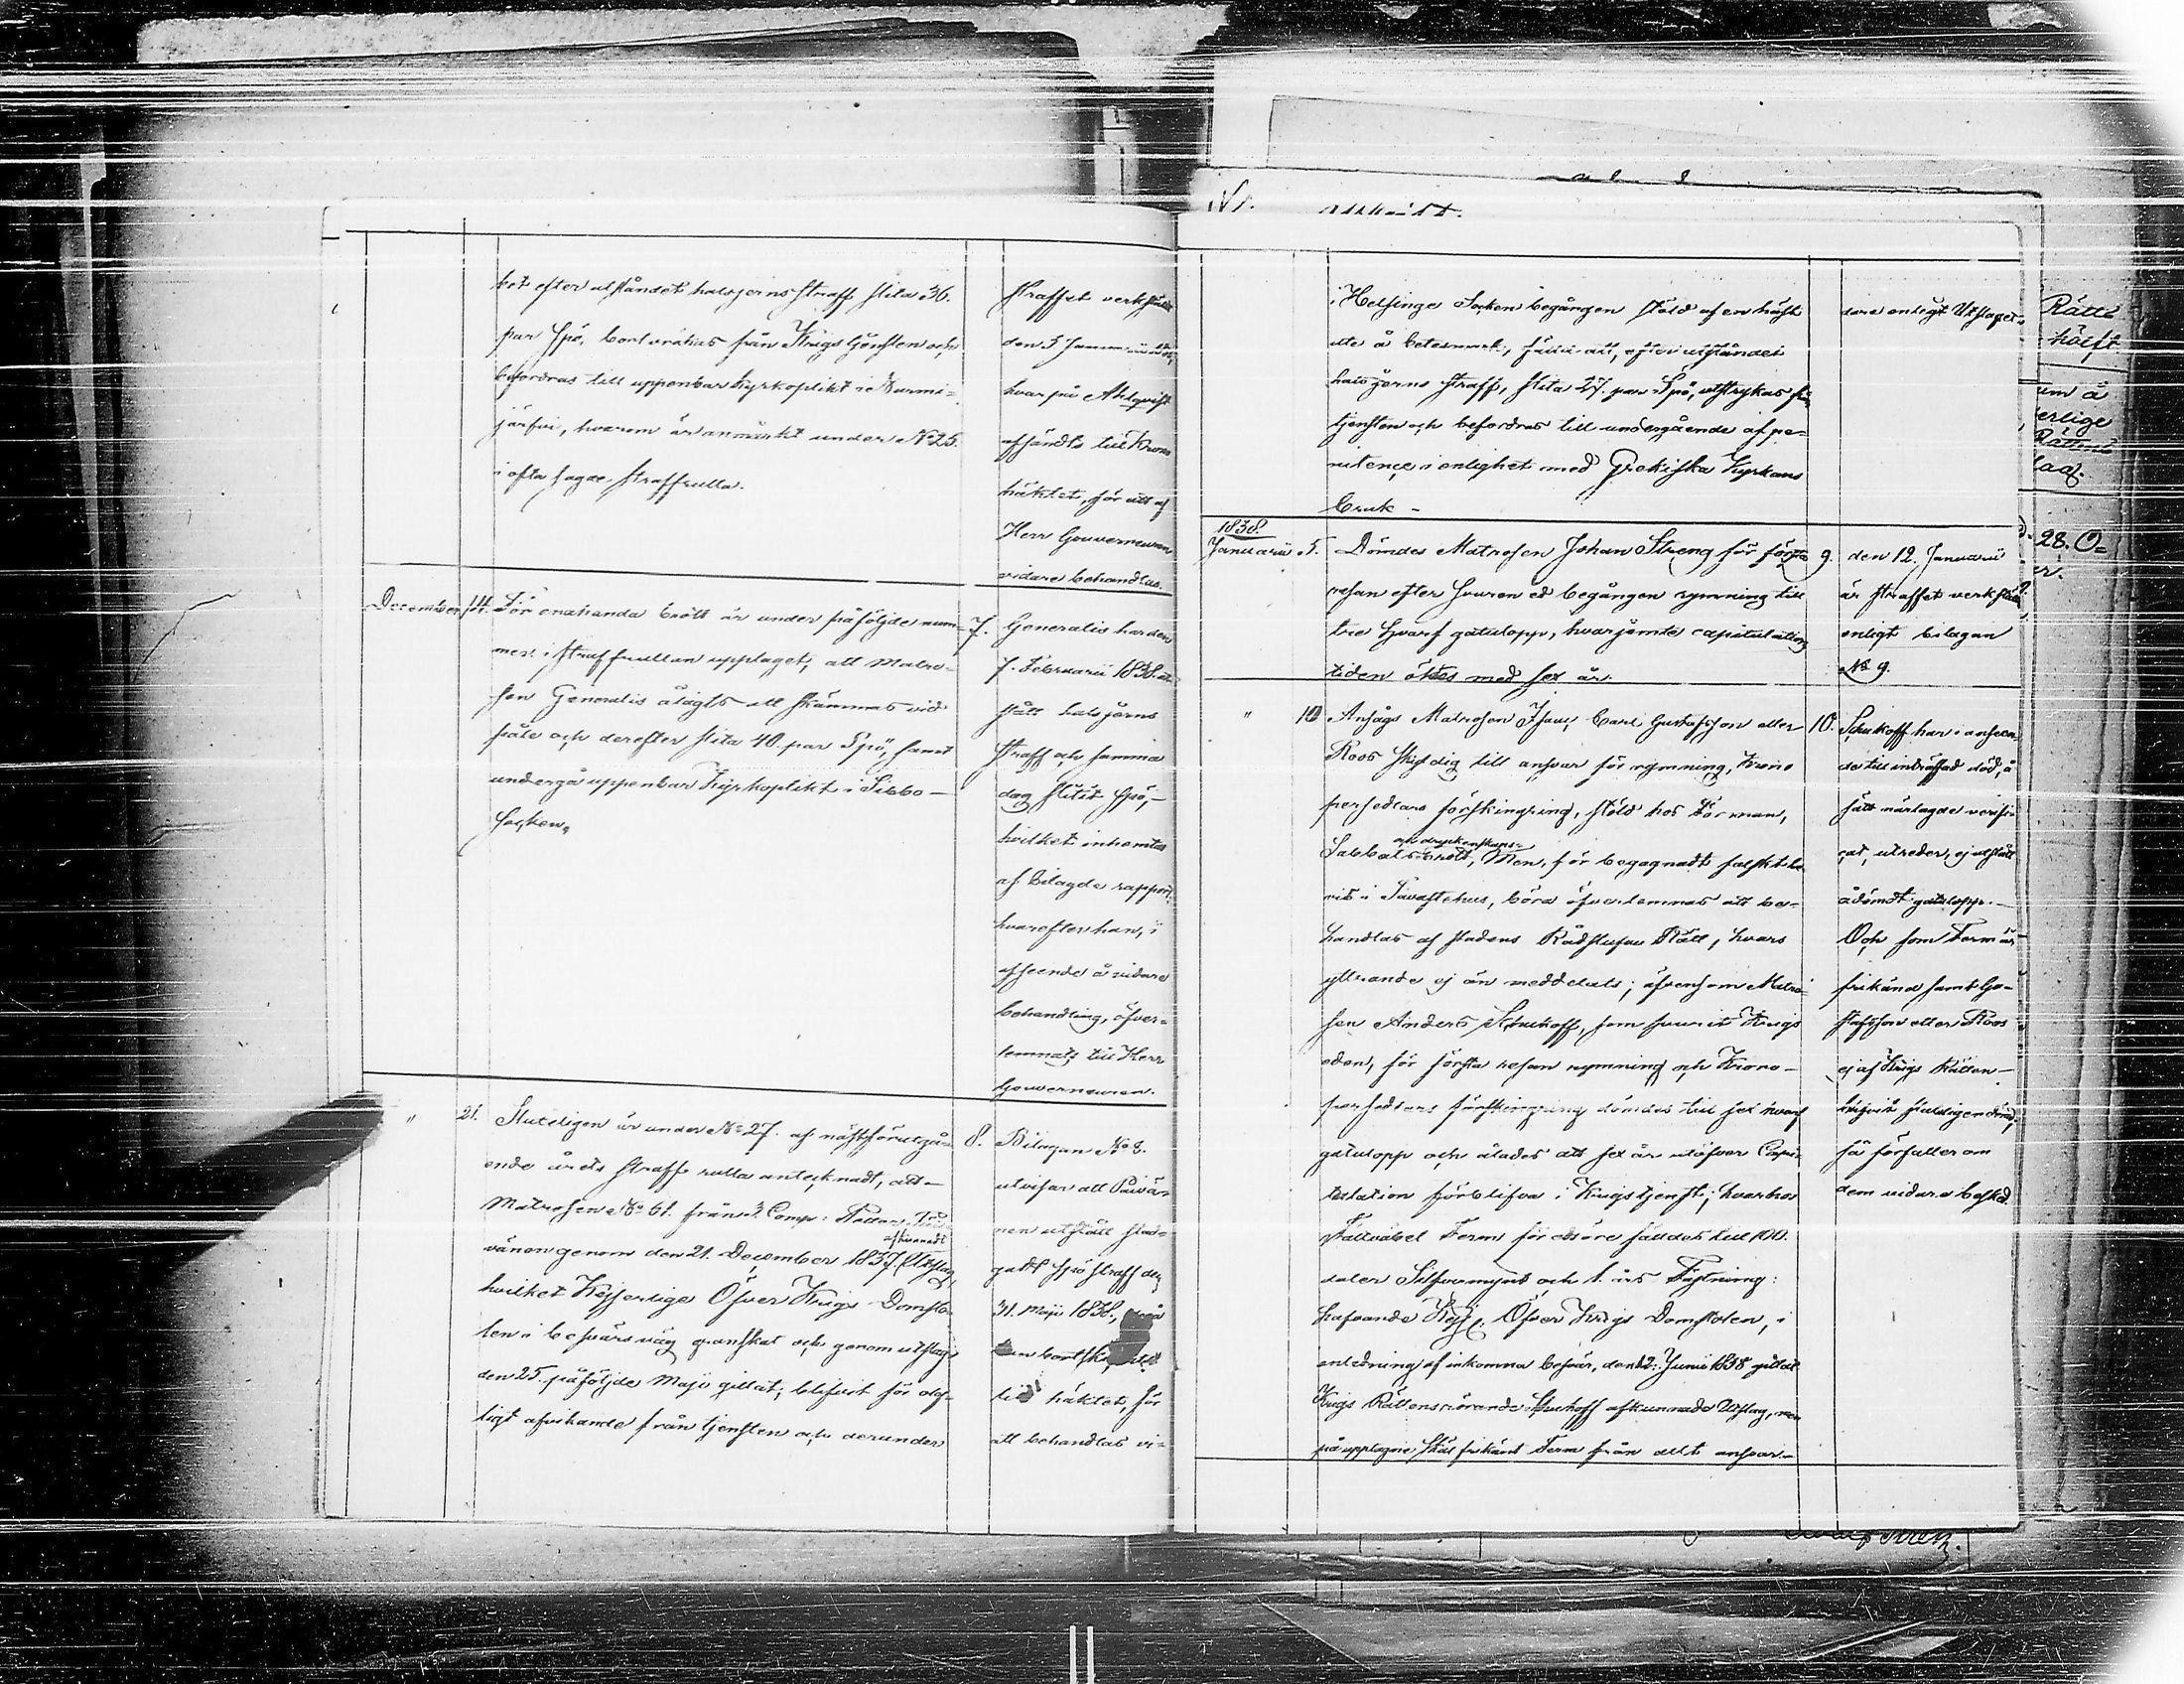 bot efter utståndet halsjernsstraff slita 36.
par spö, bortvräkas från Krigstjensten och
befordras till uppenbar kyrkoplikt i Nurmi-
järfvi, hvarom är anmärkt under No 25.
i ofta sagde straffrulla.
straffet verkstäldt
den 5 Januarii
hvarpå Ahlqvist
afsändts till Krono
häktet, för att af
Herr Gouverneuren
vidare behandlas.
December 14. För enahanda brott är under påföljde num-
mer i straffrullan upptaget, att Matro-
sen Generalis ålagts att skämmas vid
påle och derefter slita 40. par Spö, samt
undergå uppenbar Kyrkoplikt i Sibbo
Socken.
7. Generalis har den
7. Februarii 1838. ut-
stått halsjerns
straff och samma
dag slitit Spö,
hvilket inhemtas
af bilagde rapport
hvarefter han, i
afseende å vidare
behandling, öfver-
lemnats till Herr
Gouverneuren.
" 21. Slutligen är under No 27. af nästförutgå-
ende årets straff rulla antecknadt, att
Matrosen No 61. från 3. Comp:
afkunnadt
vänen genom den 21. December 1837. Utslag,
hvilket Kejserlige Öfver Krigs Domsto-
len i besvärsväg granskat och genom utslag
den 25. påföljde Maji gillat, blifvit för olof-
ligt afvikande från tjensten och derunder
8. Bilagan No 8.
utvisar att Päivä-
nen utstått stad-
gadt spöstraff den
31. Maji 1838,
häktet, för
att behandlas vi-
i Helsinge Socken begången stöld af en häst
ute å betesmark, fäld att, efter utståndet
halsjerns straff, slita 27. par Spö, utstrykas från
tjensten och befordras till undergående af pe-
nitence i enlighet med Grekiska Kyrkans
bruk -
dare enligt Utslaget.
1838.
Januarii 5. Dömdes Matrosen Johan Streng för första
resan efter svuren ed begången rymning till
tre hvarf gatulopp, hvarjemte capitulations
tiden öktes med sex år.
9. den 12. Januarii
är straffet verkstäldt
enligt bilagan
No 9.
" 10 Ansågs Matrosen Isaac Carl Gustafsson eller
Roos skyldig till ansvar för rymning, Krono
persedlars förskingring, stöld hos Förman,
och dryckenskaps-
Sabbatsbrott, Men, för begagnadt falskt be-
vis i Tavastehus, böra öfverlemnas att be-
handlas af stadens Rådstufvu Rätt, hvars
yttrande ej än meddelats; äfvensom Matro-
sen Anders Schukoff, som svurit Krigs
eden, för första resan rymning och Krono-
persedlars förskingring dömdes till sex hvarf
gatulopp och ålades att sex år utöfver Capi-
tulation förblifva i Krigstjenst; hvarhos
Fältväbel Ferm för edsöre fäldes till 100.
daler Silfvermynt och 1. års Fästning:
hafvande Kejs. Öfver Krigs Domstolen, i
anledning af inkomna besvär, den 12. Junii 1838 gillat
Krigs Rättens rörande Schukoff afkunnade Utslag, men
på upptagne skäl frikänt Ferm från allt ansvar.
10. Schukoff har i anseen-
de till inträffad död, å
sätt närlagde verifi-
cat, utreder, ej utstått
ådömdt gatulopp.
Och som Ferm är
frikänd samt Gu-
stafsson eller Roos
ej af Krigs Rätten
blifvit slutligen dömd,
så förfaller om
dem vidare besked.
Rätts
hälft
um å
erlige
Rättens
lag.
28. O-